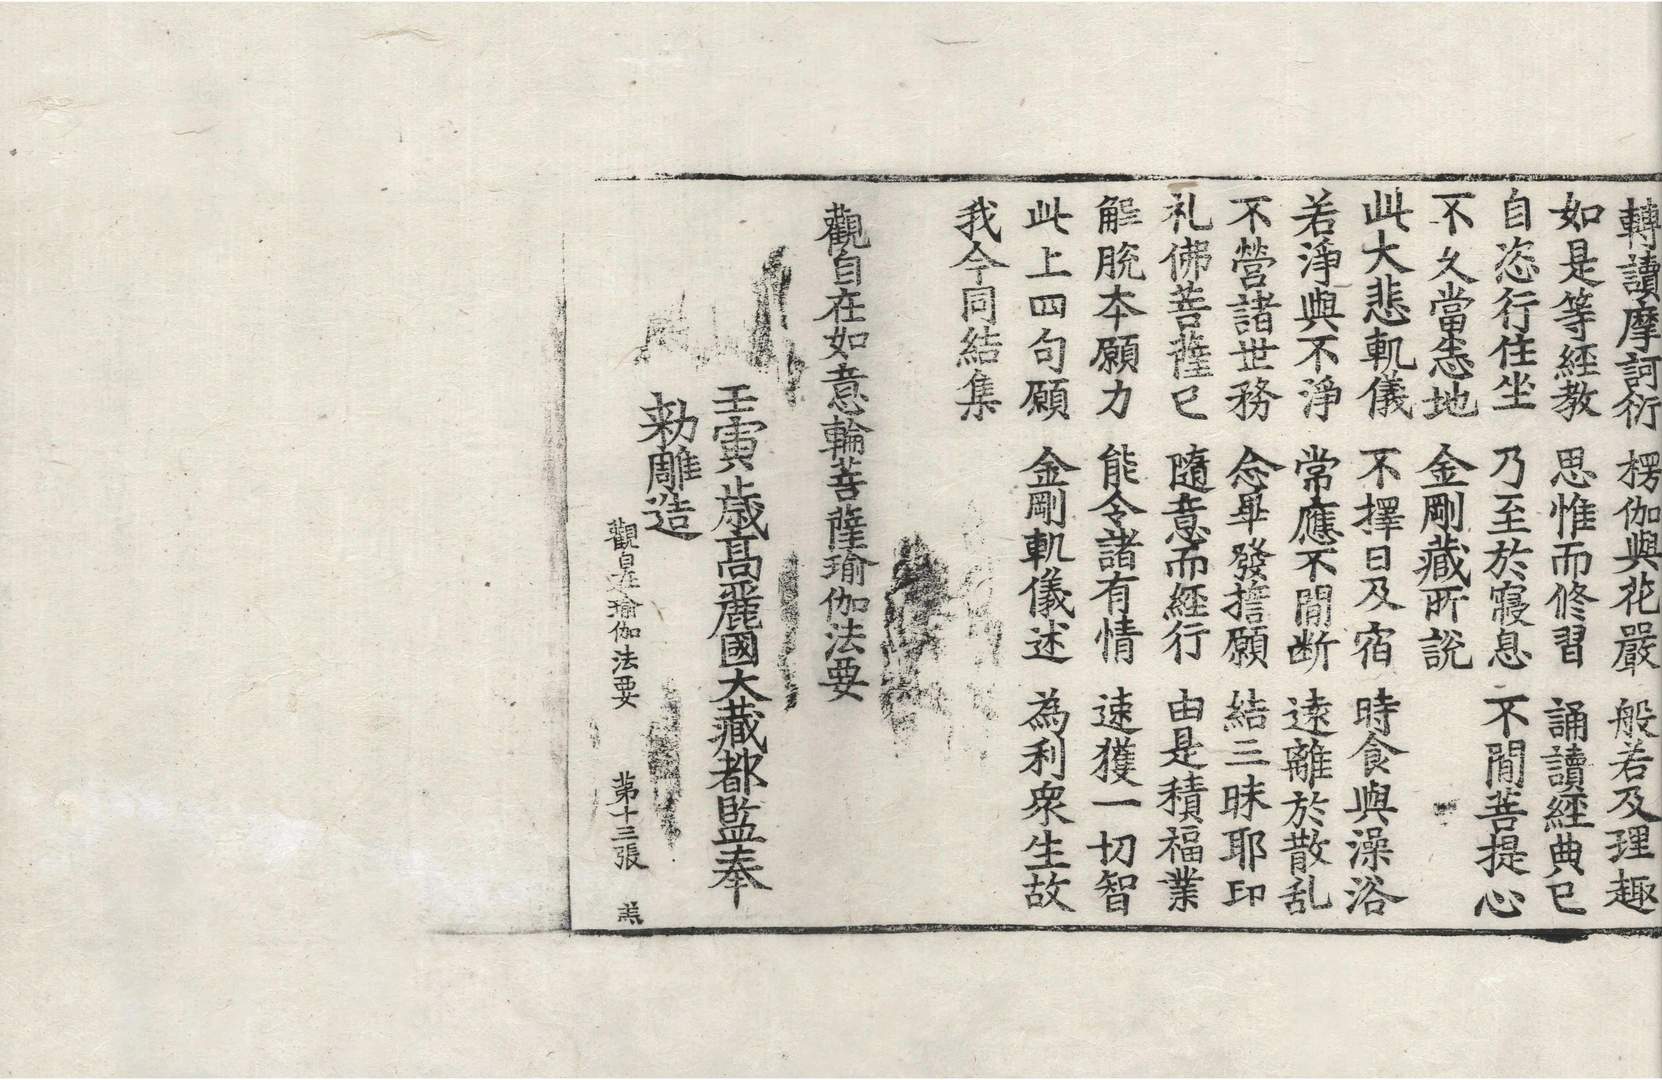 轉讀摩訶衍 楞伽與花嚴 般若及理趣
如是等經教 思惟而修習 誦讀經典已
自恣行住坐 乃至於寢息 不間菩提心
不久當悉地 金剛藏所說
此大悲軌儀 不擇日及宿 時食與澡浴
若淨與不淨 常應不間断 遠離於散乱
不營諸世務 念畢發誓願 結三昧耶印
礼佛菩薩已 隨意而經行 由是積福業
解脫本願力 能令諸有情 速獲一切智
此上四句願 金剛軌儀述 為利衆生故
我今同結集
觀自在如意輪菩薩瑜伽法要
壬寅歳高麗國大藏都監奉
勑雕造
觀自在瑜伽法要 第十三張 羔